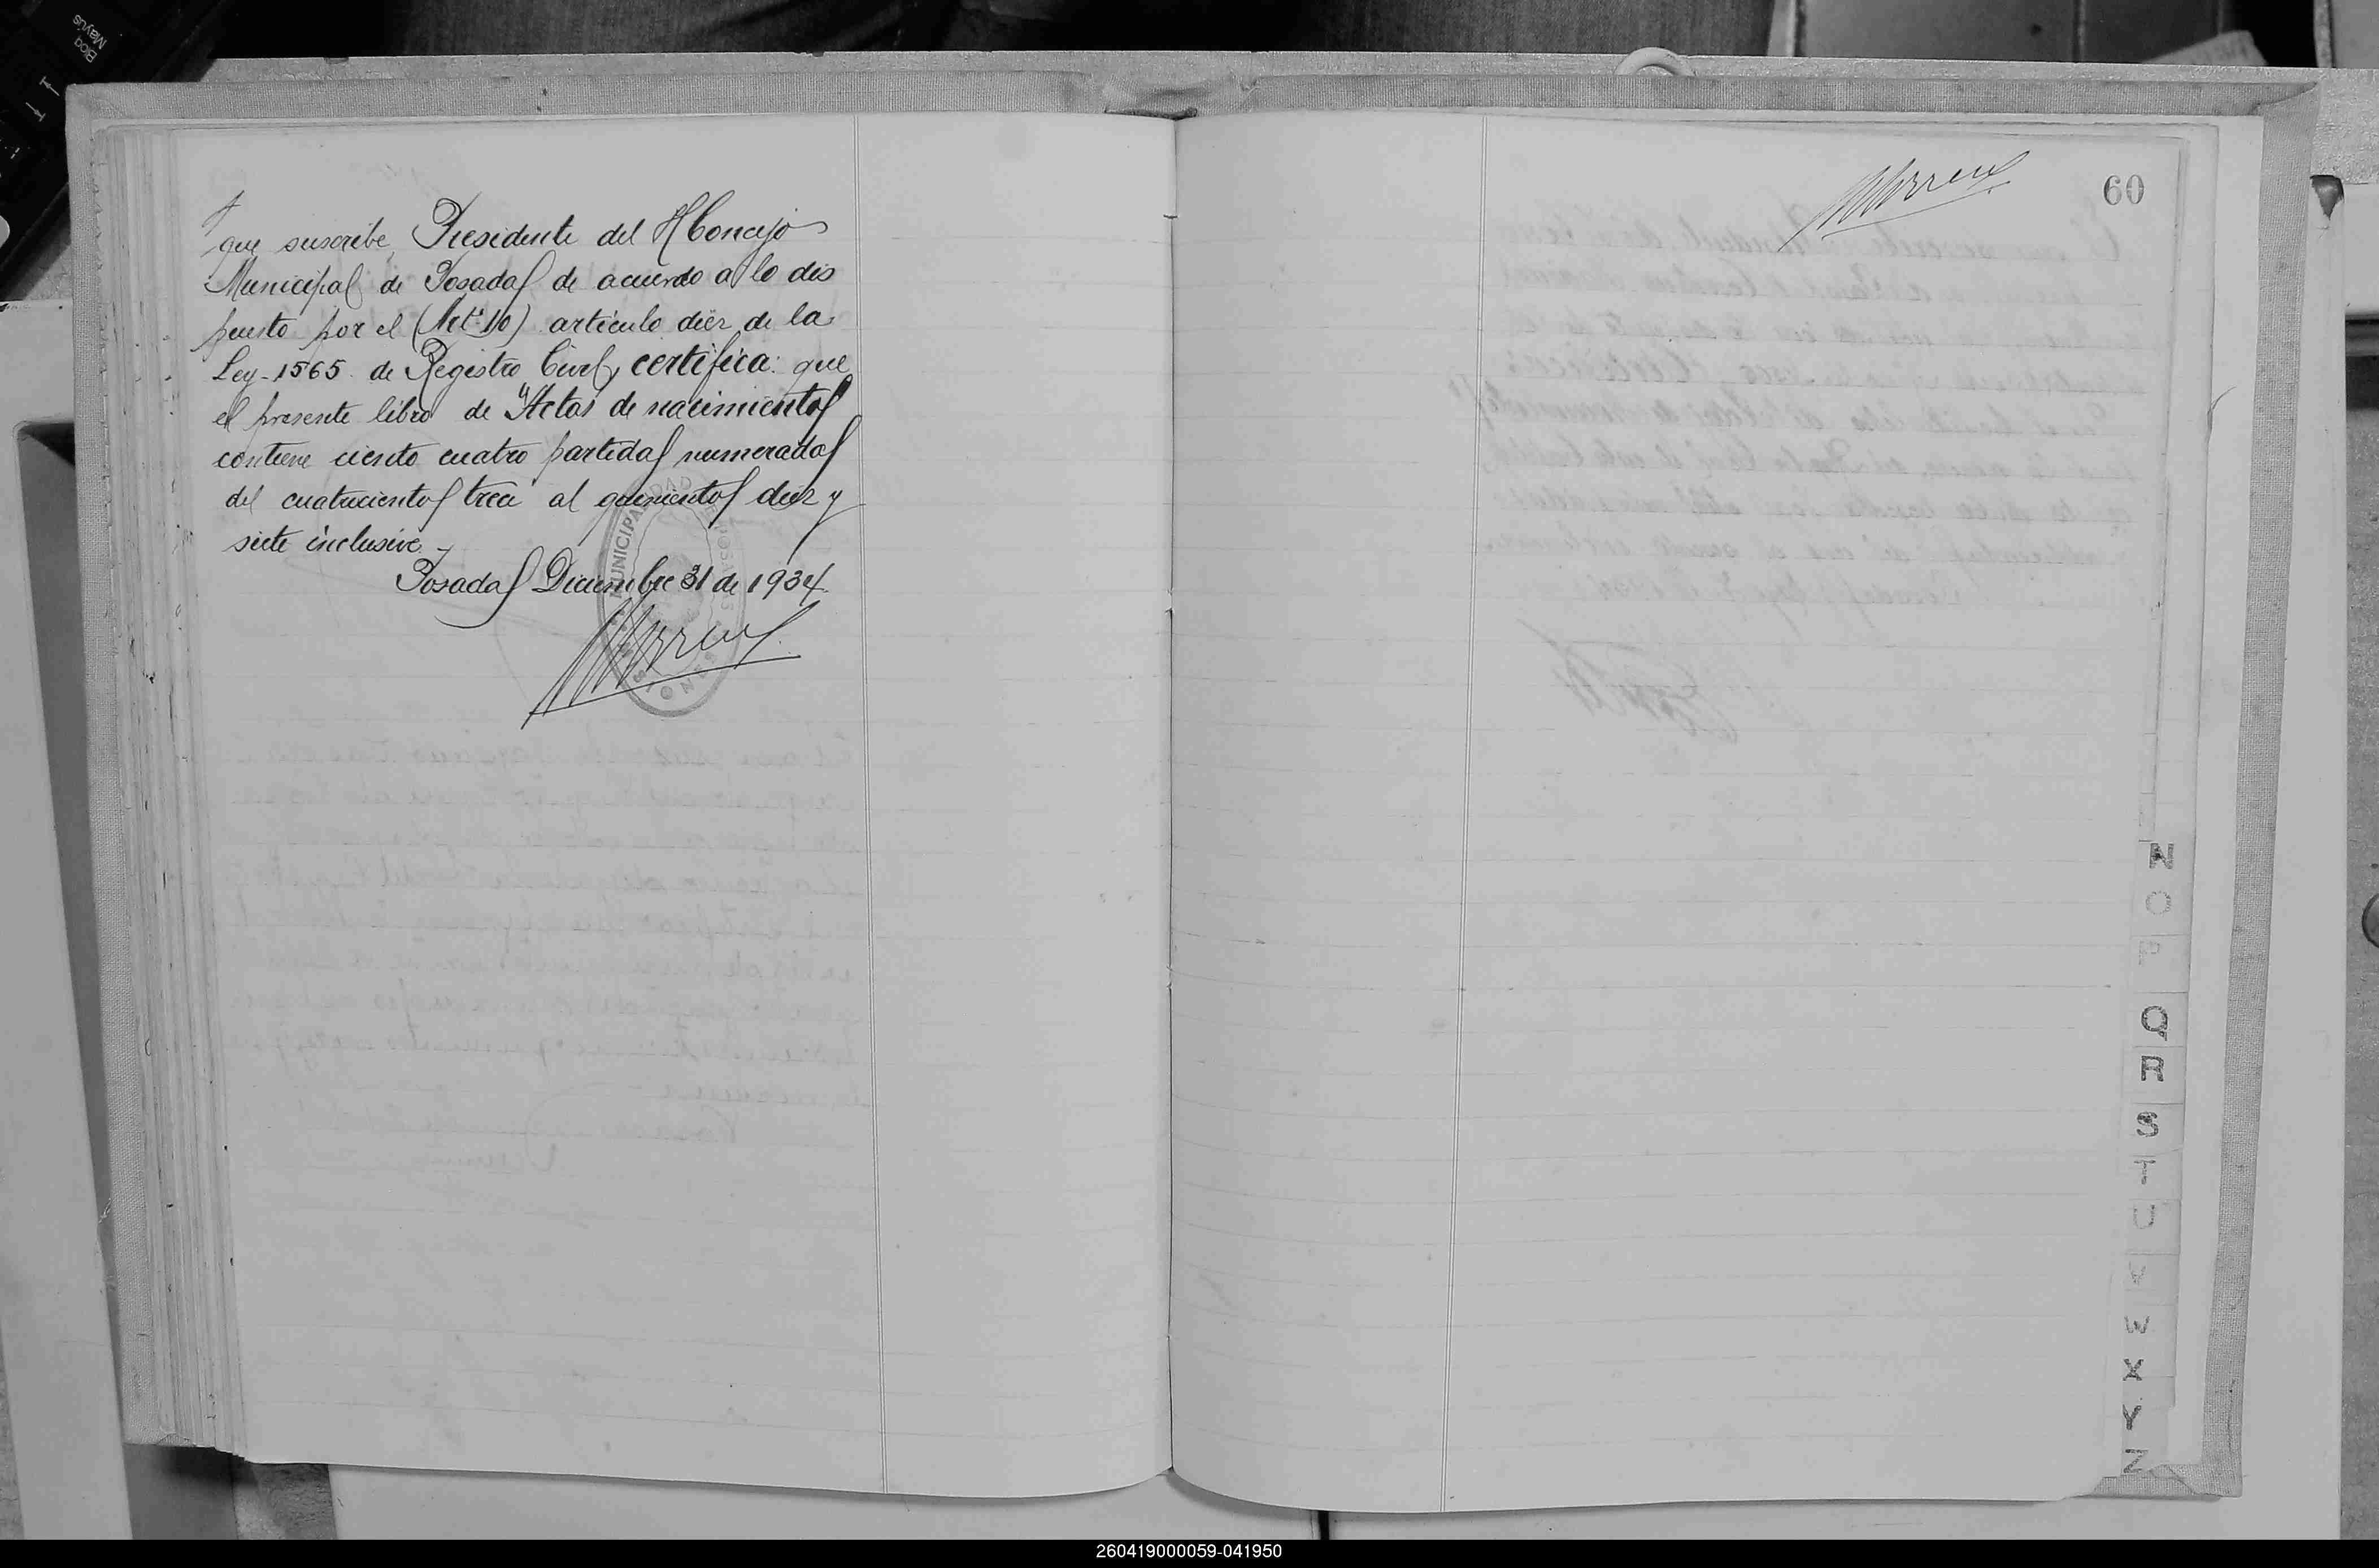 que suscribe, Presidente del H Concejo
Municipal de Posadas de acuerdo a lo dis
puesto por el (Art. 10) articulo diez de la
Ley-1565 de Registro Civil, certifica: que
el presente libro de "Actas de nacimientos
contiene ciento cuatro partidas numeradas
del cuatrucientos trece al quinientos diez y
siete inclusive.-
Posadas Diciembre 31 de 1934.
MUNICIPALIDAD DE POSADAS
MISIONES
60
N
O
P
Q
R
S
T
U
V
W
X
Y
Z
Bloq
Mayús
260419000059-041950